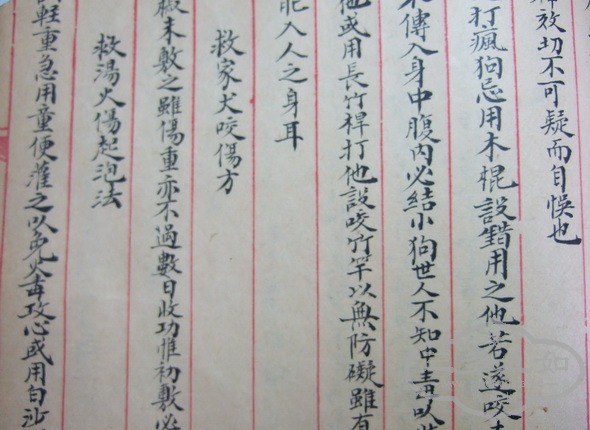 效切不可疑而自悞也
打瘋狗忌用木棍設錯用之他若遂咬
傳入身中腹內必結小狗世人不知中毒以
他或用長竹桿打他設咬竹竿以無防礙雖有
能入人之身耳
救家犬咬傷方
末敷之雖傷重亦不過數日收功惟初敷必
救湯火傷起泡法
輕重急用童便淮之以免火毒攻心或用白沙